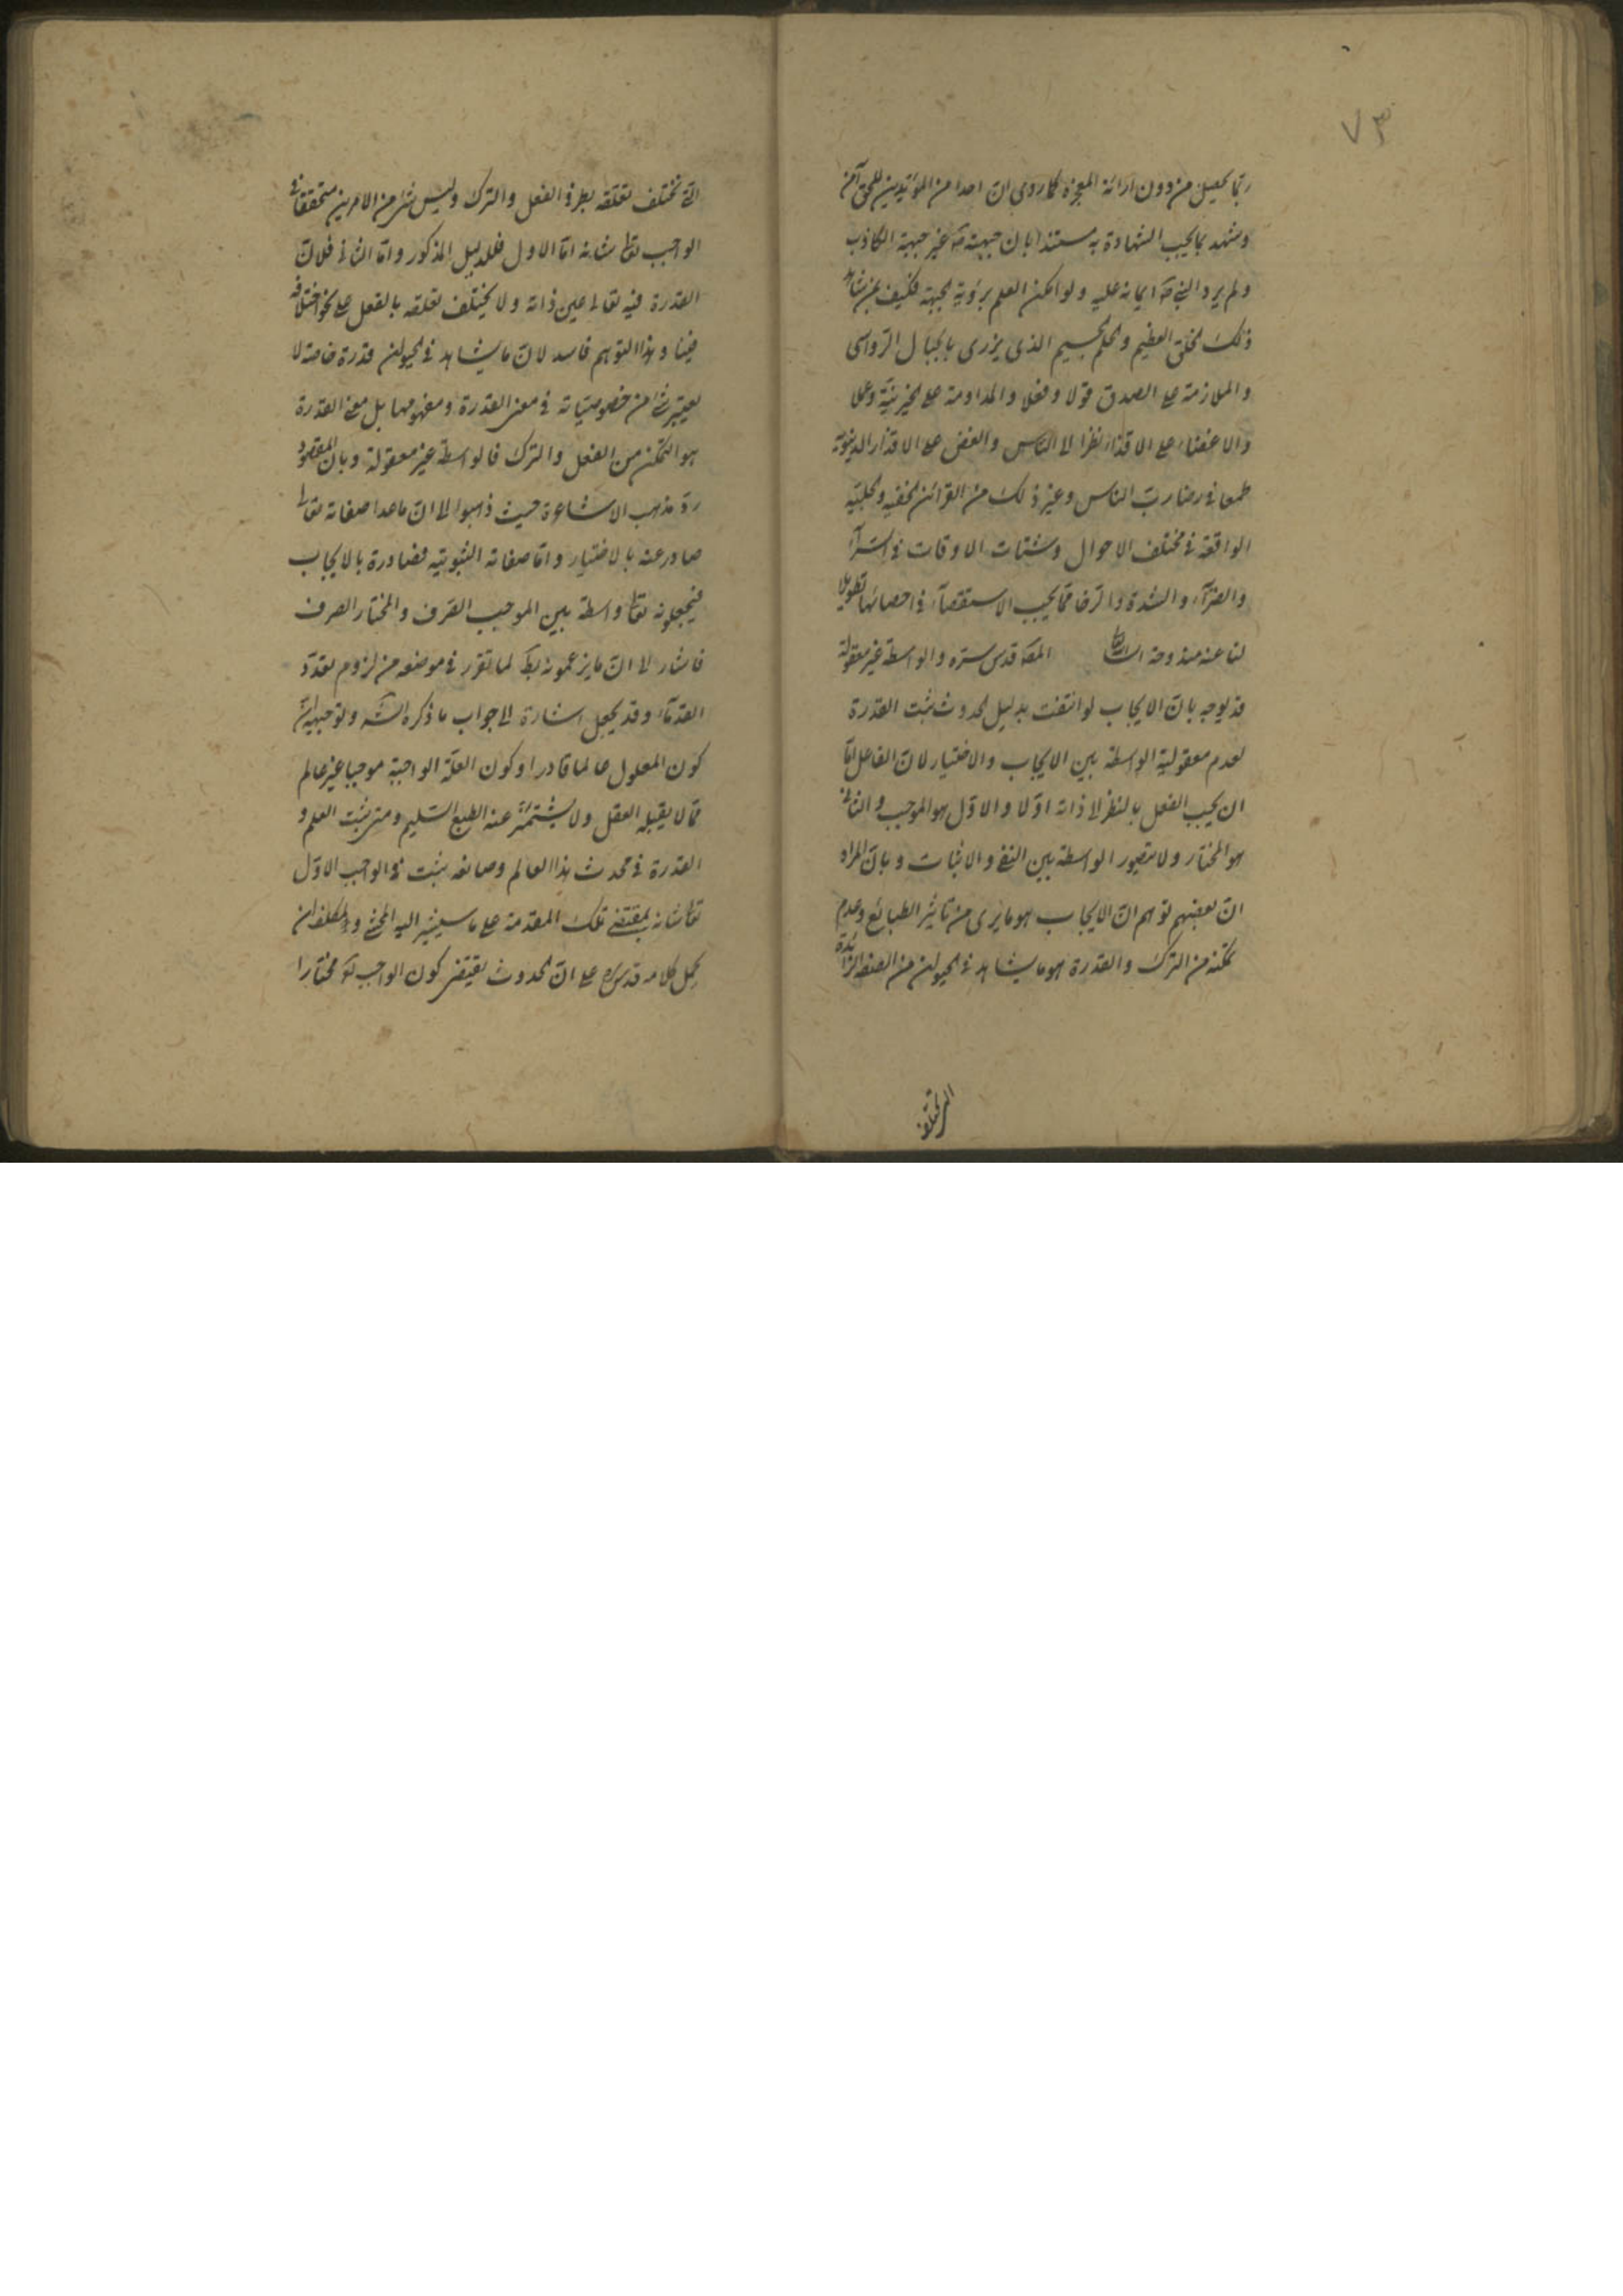 ٧٣
ربما يحصل من دون ارائة المعجزة كما روى ان احدا من المؤيدين للحق آمن
وشهد بما يجب الشهادة به مستندا بان جبهته صَ غير جبهة الكاذب
ولم يرد النبي صَ ايمانه عليه ولو امكن العلم برؤية الجبهة فكيف بمن شاهد
ذلك الخلق العظيم والحلم الجسيم الذى يزرى بالجبال الرواسى
والملازمة على الصدق قولا وفعلا والمداومة على الخير نيّة وعملا
والاغضاء على الاقذاء نظرا الى الناس والغض على الاقذار الدنيوية
طمعا فى رضا ربّ الناس وغير ذلك من القرائن الخفيه والجليّه
الواقعة فى مختلف الاحوال وشتات الاوقات فى السّرآء
والضرّآء والشدة والرّخا ممّا يجب الاستقصآء فى احصائها تطويلا
لنا عنه مندوحة المصَ قدس سرّه والواسطة غير معقولة
قد يوجه بان الايجاب لو انتفت بدليل الحدوث ثبت القدرة
لعدم معقولية الواسطة بين الايجاب والاختيار لان الفاعل امّا
ان يجب الفعل بالنظر الى ذاته اوّلا والاوّل هو الموجب والثانى
هو المختار ولا يتصور الواسطة بين النفى والاثبات وبانّ المراد
انّ بعضهم توهم انّ الايجاب هو ما يرى من تاثير الطبائع وعدم
تمكنه من الترك والقدرة هو ما يشاهد فى الحيوان من الصفة الزائدة
التى تختلف
التى تختلف تعلقه بطرفى الفعل والترك وليس شئ من الامرين متحققا فى
الواجب تعَا شانه امّا الاول فللدليل المذكور وامّا الثانى فلانّ
القدرة فيه تعالى عين ذاته ولا يختلف تعلقه بالفعل على نحو اختلافه
فينا وهذا التوهم فاسد لانّ ما يشاهد فى الحيوان قدرة خاصة لا
يعتبر شئ من خصوصيّاته فى معنى القدرة ومفهومها بل معنى القدرة
هو التمكن من الفعل والترك فالواسطة غير معقولة وبان المقصود
ردّ مذهب الاشاعرة حيث ذهبوا الى انّ ما عدا صفاته تعَا
صادر عنه بالاختيار وامّا صفاته الثبوتيه فصادرة بالايجاب
فيجعلونه تعَا واسطة بين الموجب الصّرف والمختار الصرف
فاشار الى انّ ما يزعمونه بط لما تقرر فى موضعه من لزوم تعدّد
القدمآء وقد يجعل اشارة الى جواب ما ذكره الشَه وتوجيهه انّ
كون المعلول عالما قادرا وكون العلّة الواجبة موجبا غير عالم
ممّا لا يقبله العقل ولا يشتمئزّ عنه الطبع السّليم ومتى ثبت العلم و
القدرة فى محدث هذا العالم وصانعه يثبت فى الواجب الاوّل
تعَا شانه بمقتضى تلك المقدمة على ما سيشير اليه المحشى وللمكلف ان
يحمل كلامه قدس سره على انّ الحدوث يقتضى كون الواجب تعَ مختارا